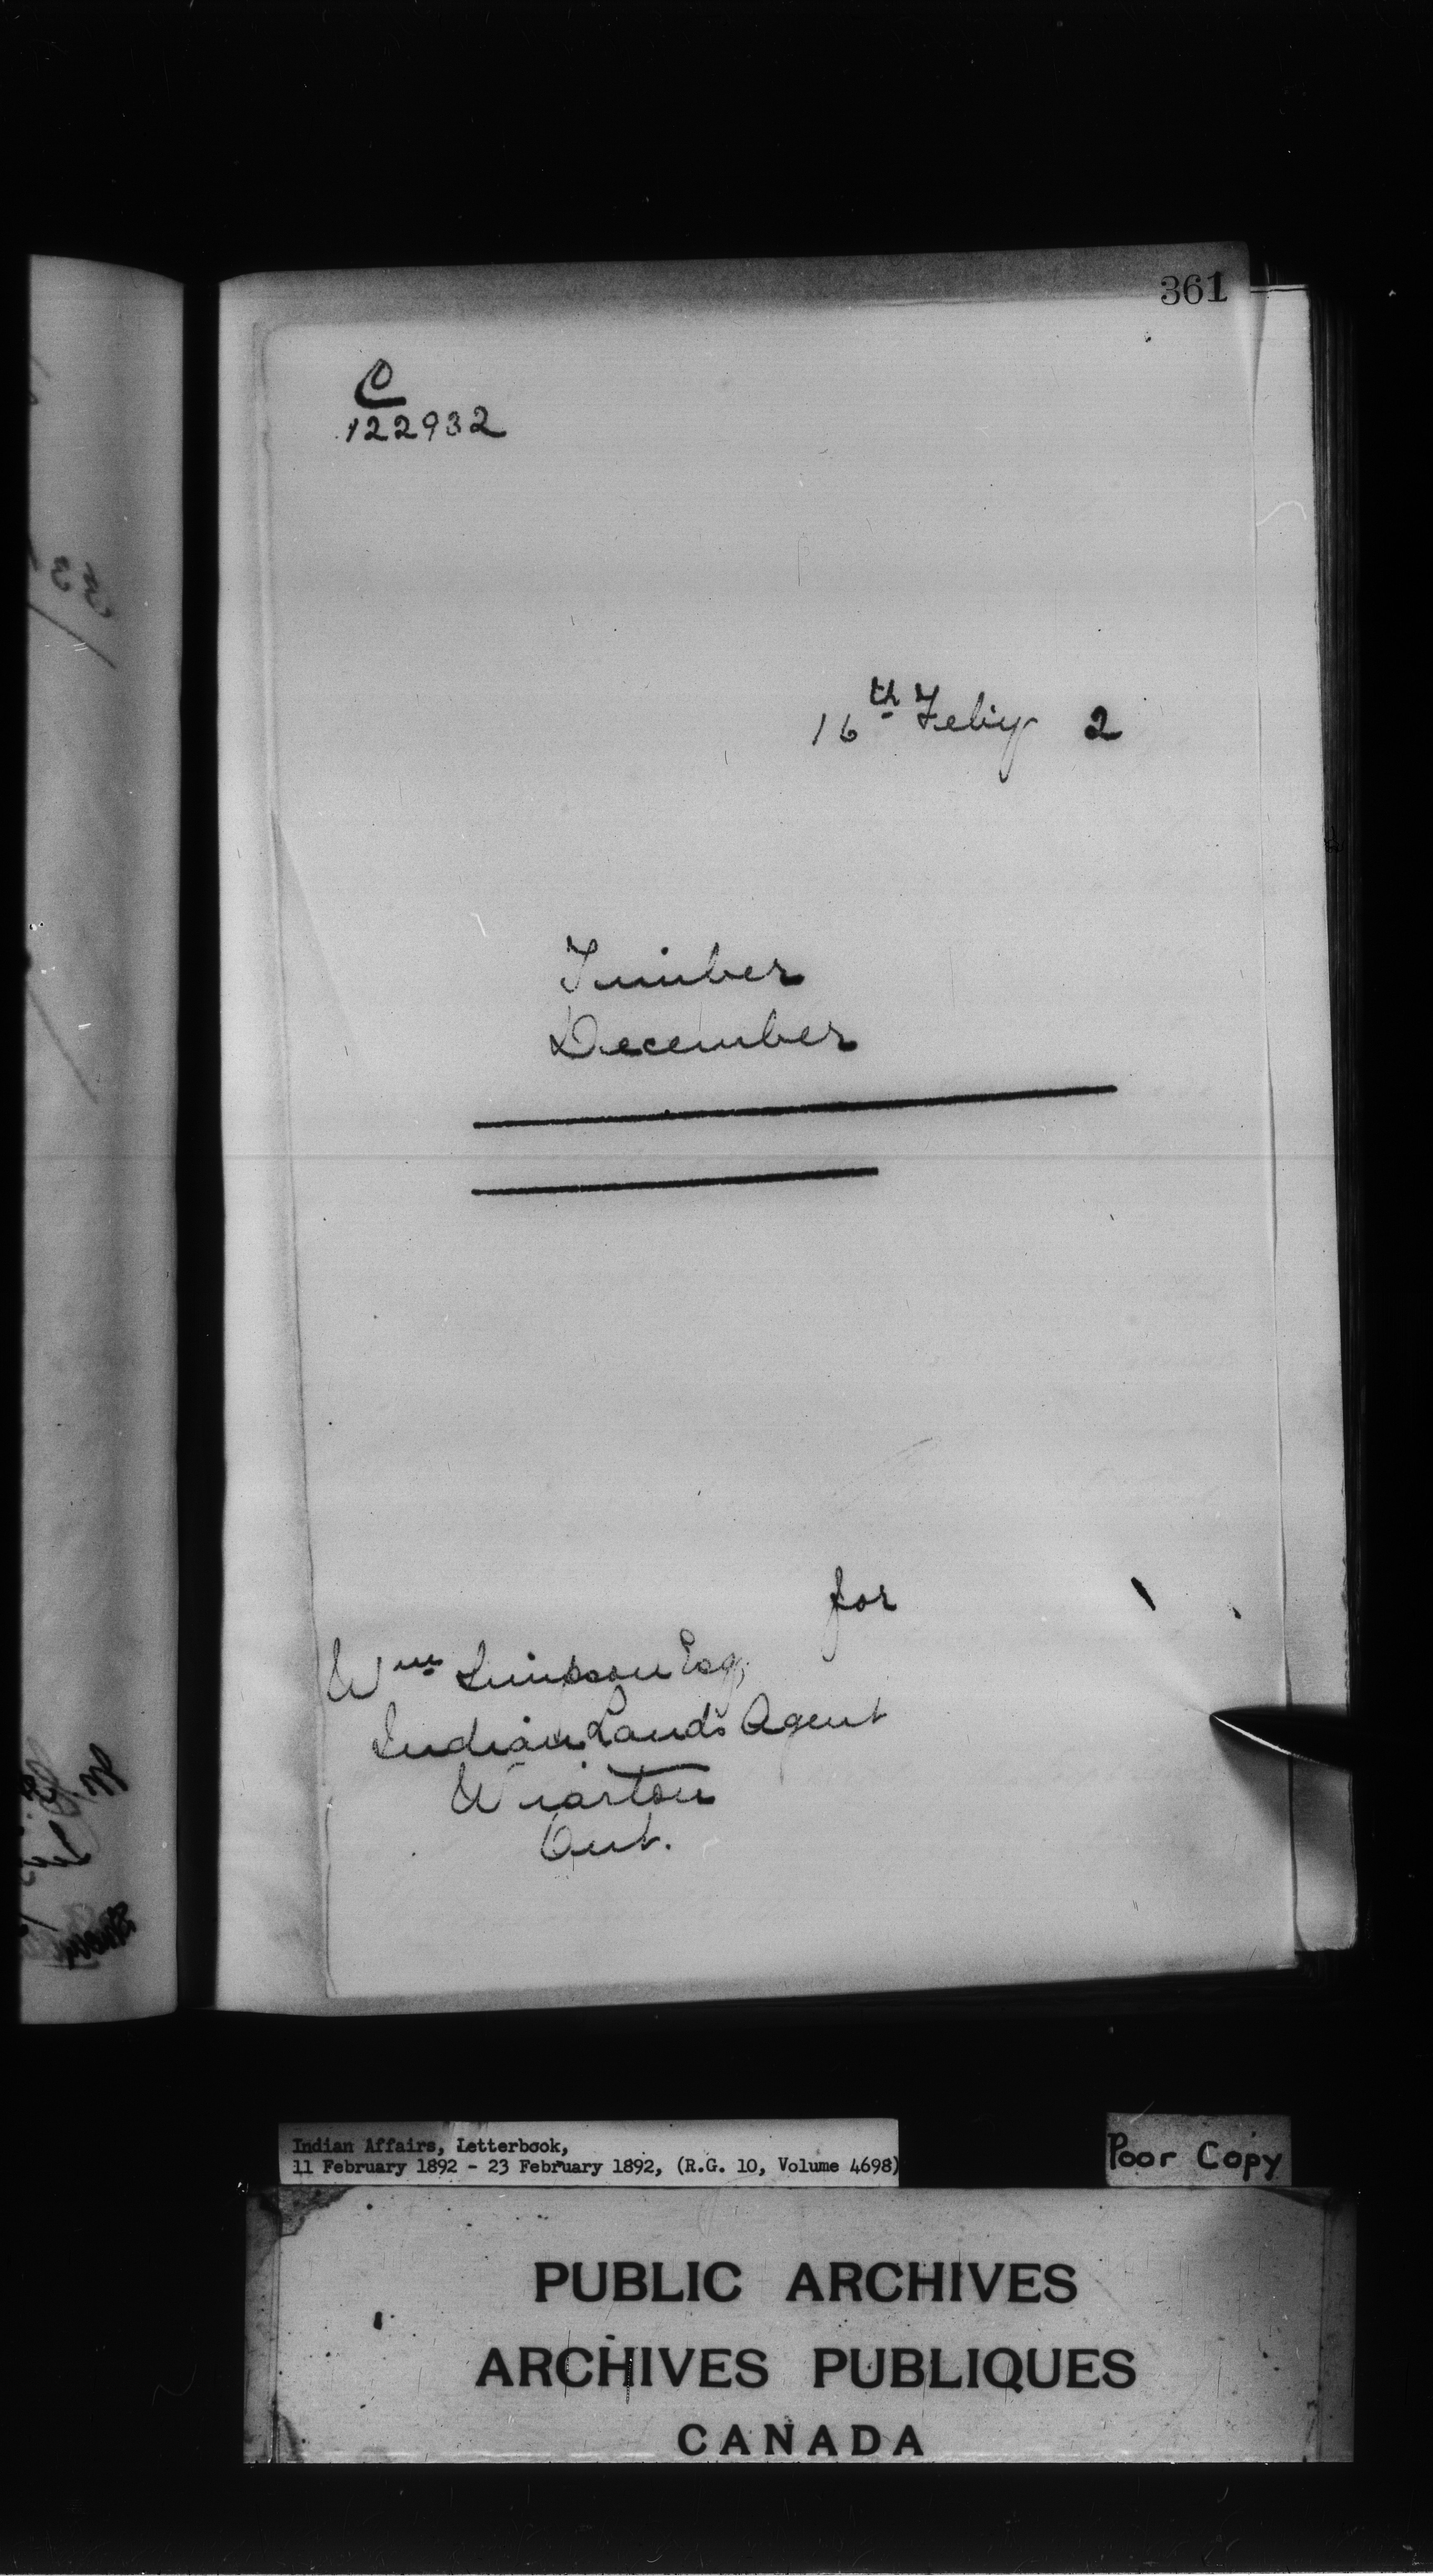 361
C
122932
16th Feby 2
Timber
December
for
Wm Simpson Esq,
Indian Lands Agent
Wiarton
Ont.
Indian Affairs, Letterbook,
11 February 1892 - 23 February 1892, (R.G. 10, Volume 4698)
Poor Copy
PUBLIC ARCHIVES
ARCHIVES PUBLIQUES
CANADA